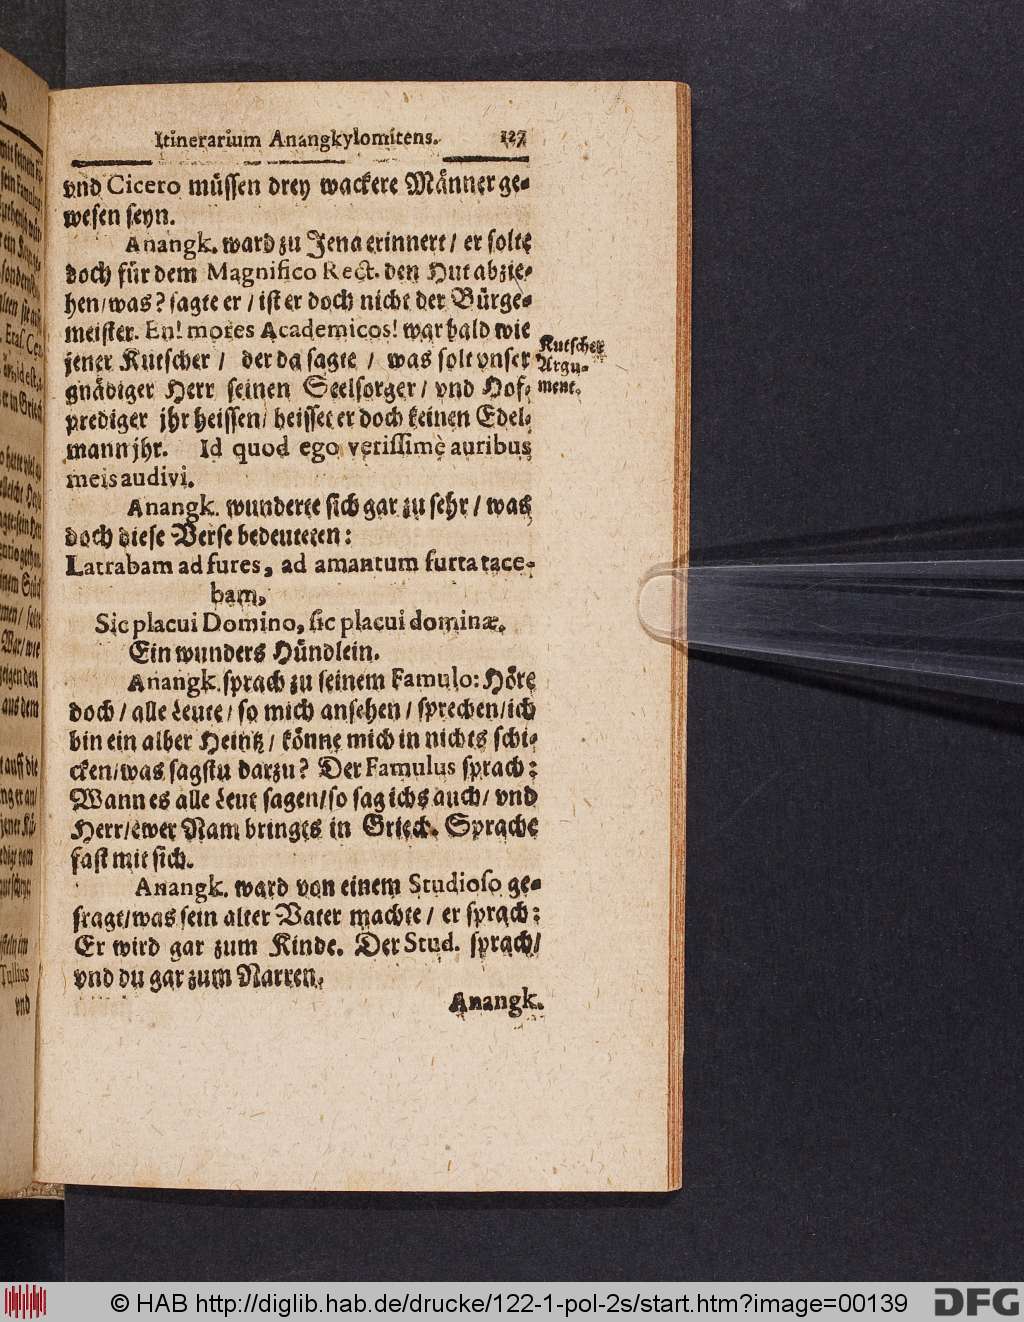 Itinerarium Anangkylomitens. 127
vnd Cicero müssen drey wackere Männer ge-
wesen seyn.
Anangk. ward zu Jena erinnert / er solte
doch für dem Magnifico Rect. den Hut abzie-
hen / was? sagte er / ist er doch nicht der Bürge-
meister. En! mores Academicos! war bald wie
jener Kutscher / der da sagte / was solt vnser
gnädiger Herr seinen Seelsorger / vnd Hof-
prediger jhr heissen / heisset er doch keinen Edel-
mann jhr. Id quod ego verissimè auribus
meis audivi.
Kutscher
Argu-
ment.
Anangk. wunderte sich gar zu sehr / was
doch diese Verse bedeuteten:
Latrabam ad fures, ad amantum furta tace-
bam,
Sic placui Domino, sic placui dominæ.
Ein wunders Hündlein.
Anangk. sprach zu seinem Famulo: Höre
doch / alle Leute / so mich ansehen / sprechen / ich
bin ein alber Heintz / könne mich in nichts schi-
cken / was sagstu darzu? Der Famulus sprach:
Wann es alle Leut sagen / so sag ichs auch / vnd
Herr / ewer Nam bringts in Griech. Sprache
fast mit sich.
Anangk. ward von einem Studioso ge-
fragt / was sein alter Vater machte / er sprach:
Er wird gar zum Kinde. Der Stud. sprach /
vnd du gar zum Narren.
Anangk.
© HAB http://diglib.hab.de/drucke/122-1-pol-2s/start.htm?image=00139
DFG